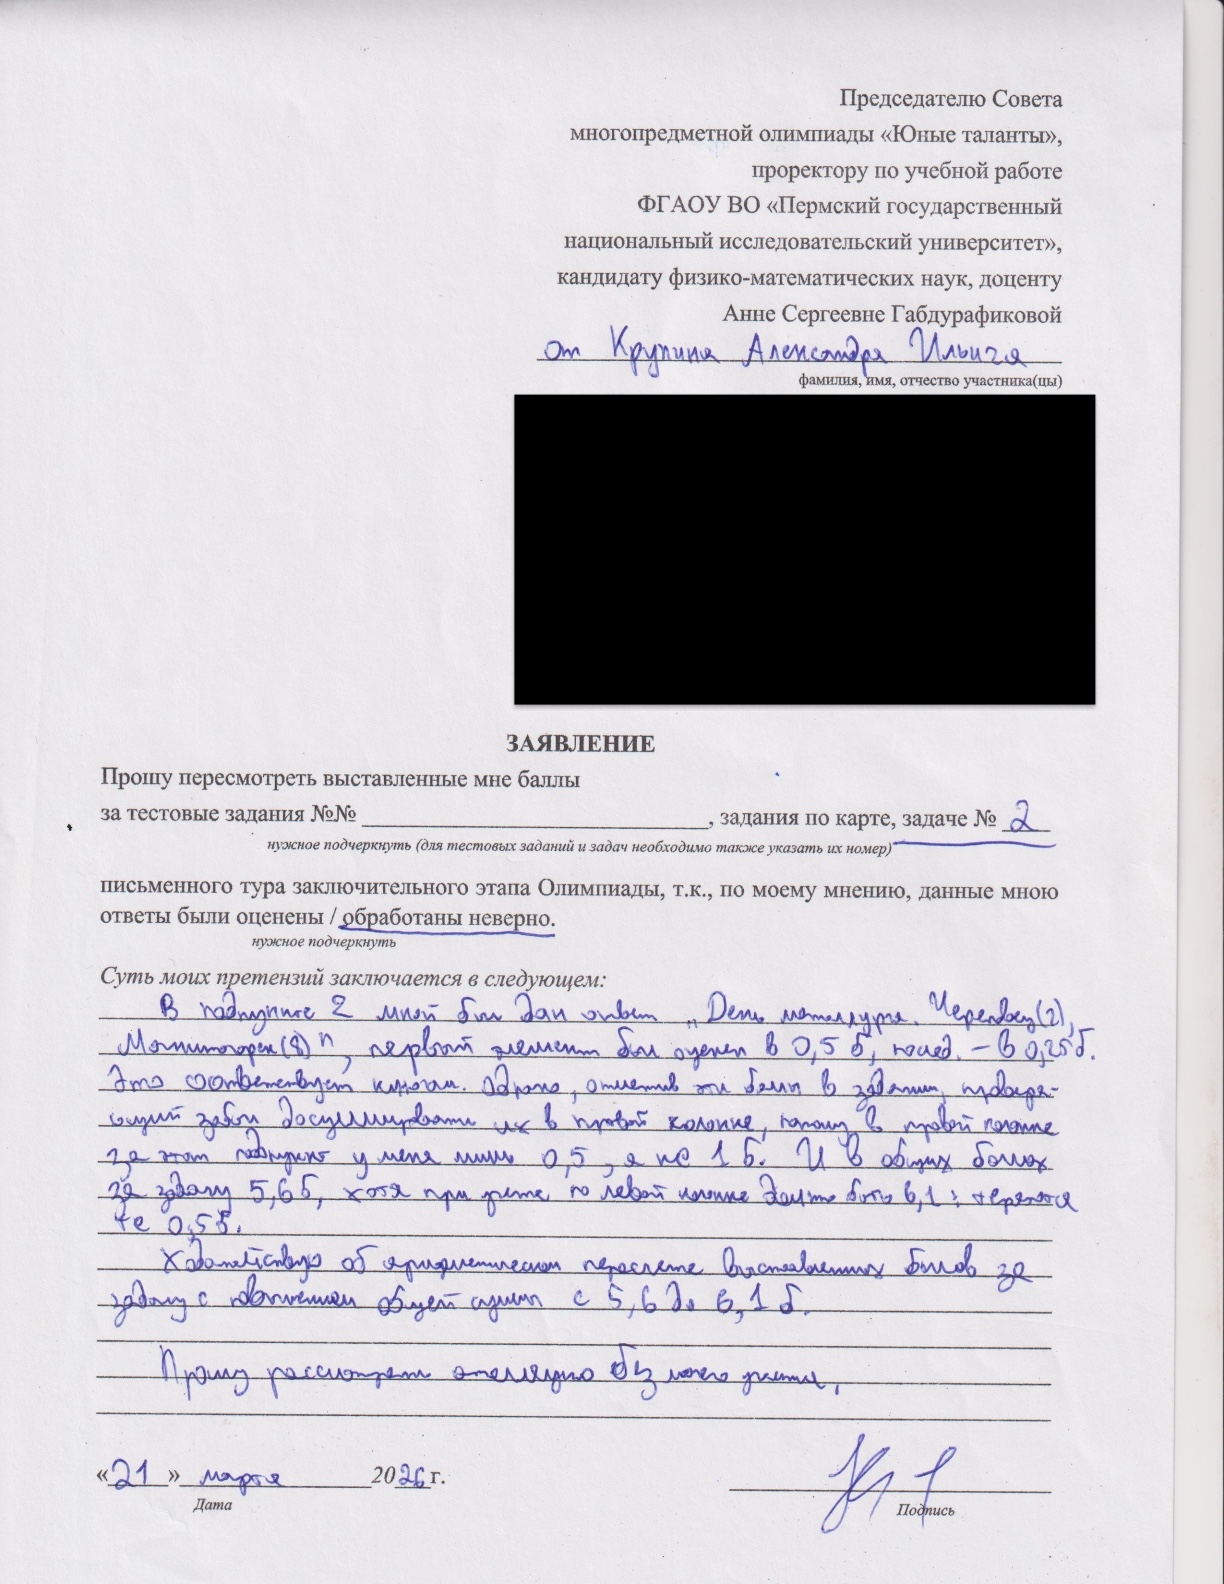 Председателю Совета
многопредметной олимпиады «Юные таланты»,
проректору по учебной работе
ФГАОУ ВО «Пермский государственный
национальный исследовательский университет»,
кандидату физико-математических наук, доценту
Анне Сергеевне Габдурафиковой
от Крупина Александра Ильича
фамилия, имя, отчество участника(цы)
ЗАЯВЛЕНИЕ
Прошу пересмотреть выставленные мне баллы
за тестовые задания №№ ____, задания по карте, задаче № 2
нужное подчеркнуть (для тестовых заданий и задач необходимо также указать их номер)
письменного тура заключительного этапа Олимпиады, т.к., по моему мнению, данные мною
ответы были оценены / обработаны неверно.
нужное подчеркнуть
Суть моих претензий заключается в следующем:
В подпункте 2 мной был дан ответ „День металлурга. Череповец(2),
Магнитогорск(8)", первый элемент был оценен в 0,5 б, послед. – в 0,25б.
Это соответствует ключам. Однако, отметив эти баллы в задании, проверя-
ющий забыл досуммировать их в правой колонке, потому в правой колонке
за этот подпункт у меня лишь 0,5, а не 1 б. И в общих баллах
за задачу 5,6 б, хотя при учете по левой колонке должно быть 6,1: теряются
те 0,5б.
Ходатайствую об арифметическом пересчете выставленных баллов за
задачу с повышением общей суммы с 5,6 до 6,1 б.
Прошу рассмотреть апелляцию без моего участия.
«21» марта 2026 г.
Дата
Подпись